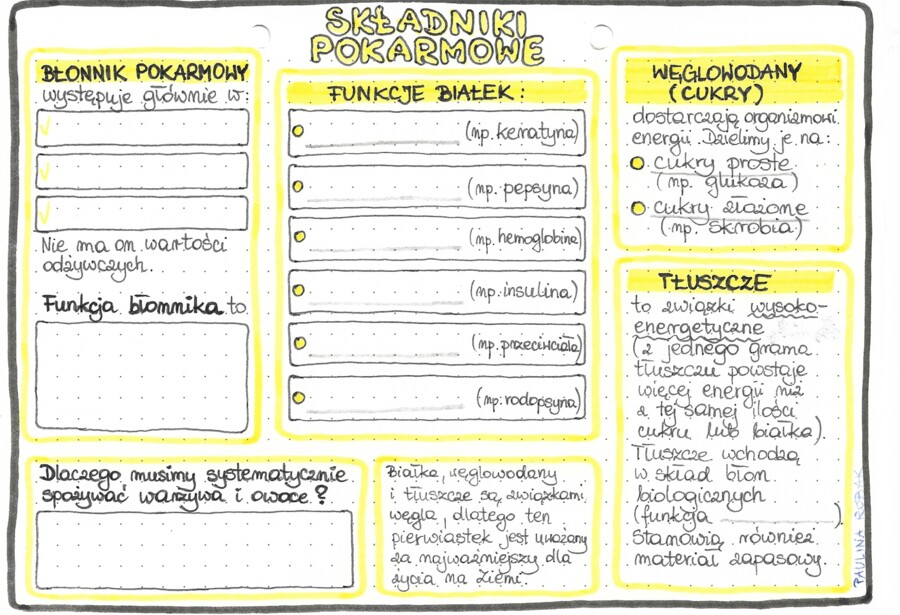 SKŁADNIKI
POKARMOWE
BŁONNIK POKARMOWY
występuje głównie w:
Nie ma on wartości
odżywczych.
Funkcja błonnika to
FUNKCJE BIAŁEK:
(np. keratyna)
(np. pepsyna)
(np. hemoglobina)
(np. insulina)
(np. przeciwciała)
(np. rodopsyna)
WĘGLOWODANY
(CUKRY)
dostarczają organizmowi
energii. Dzielimy je na:
cukry proste
(np. glukoza)
cukry złożone
(np. skrobia)
TŁUSZCZE
to związki wysoko-
energetyczne
(z jednego grama
tłuszczu powstaje
więcej energii niż
z tej samej ilości
cukru lub białka).
Tłuszcze wchodzą
w skład błon
biologicznych
(funkcja __________).
Stanowią również
materiał zapasowy.
Dlaczego musimy systematycznie
spożywać warzywa i owoce?
Białka, węglowodany
i tłuszcze są związkami
węgla, dlatego ten
pierwiastek jest uważany
za najważniejszy dla
życia na Ziemi.
PAULINA